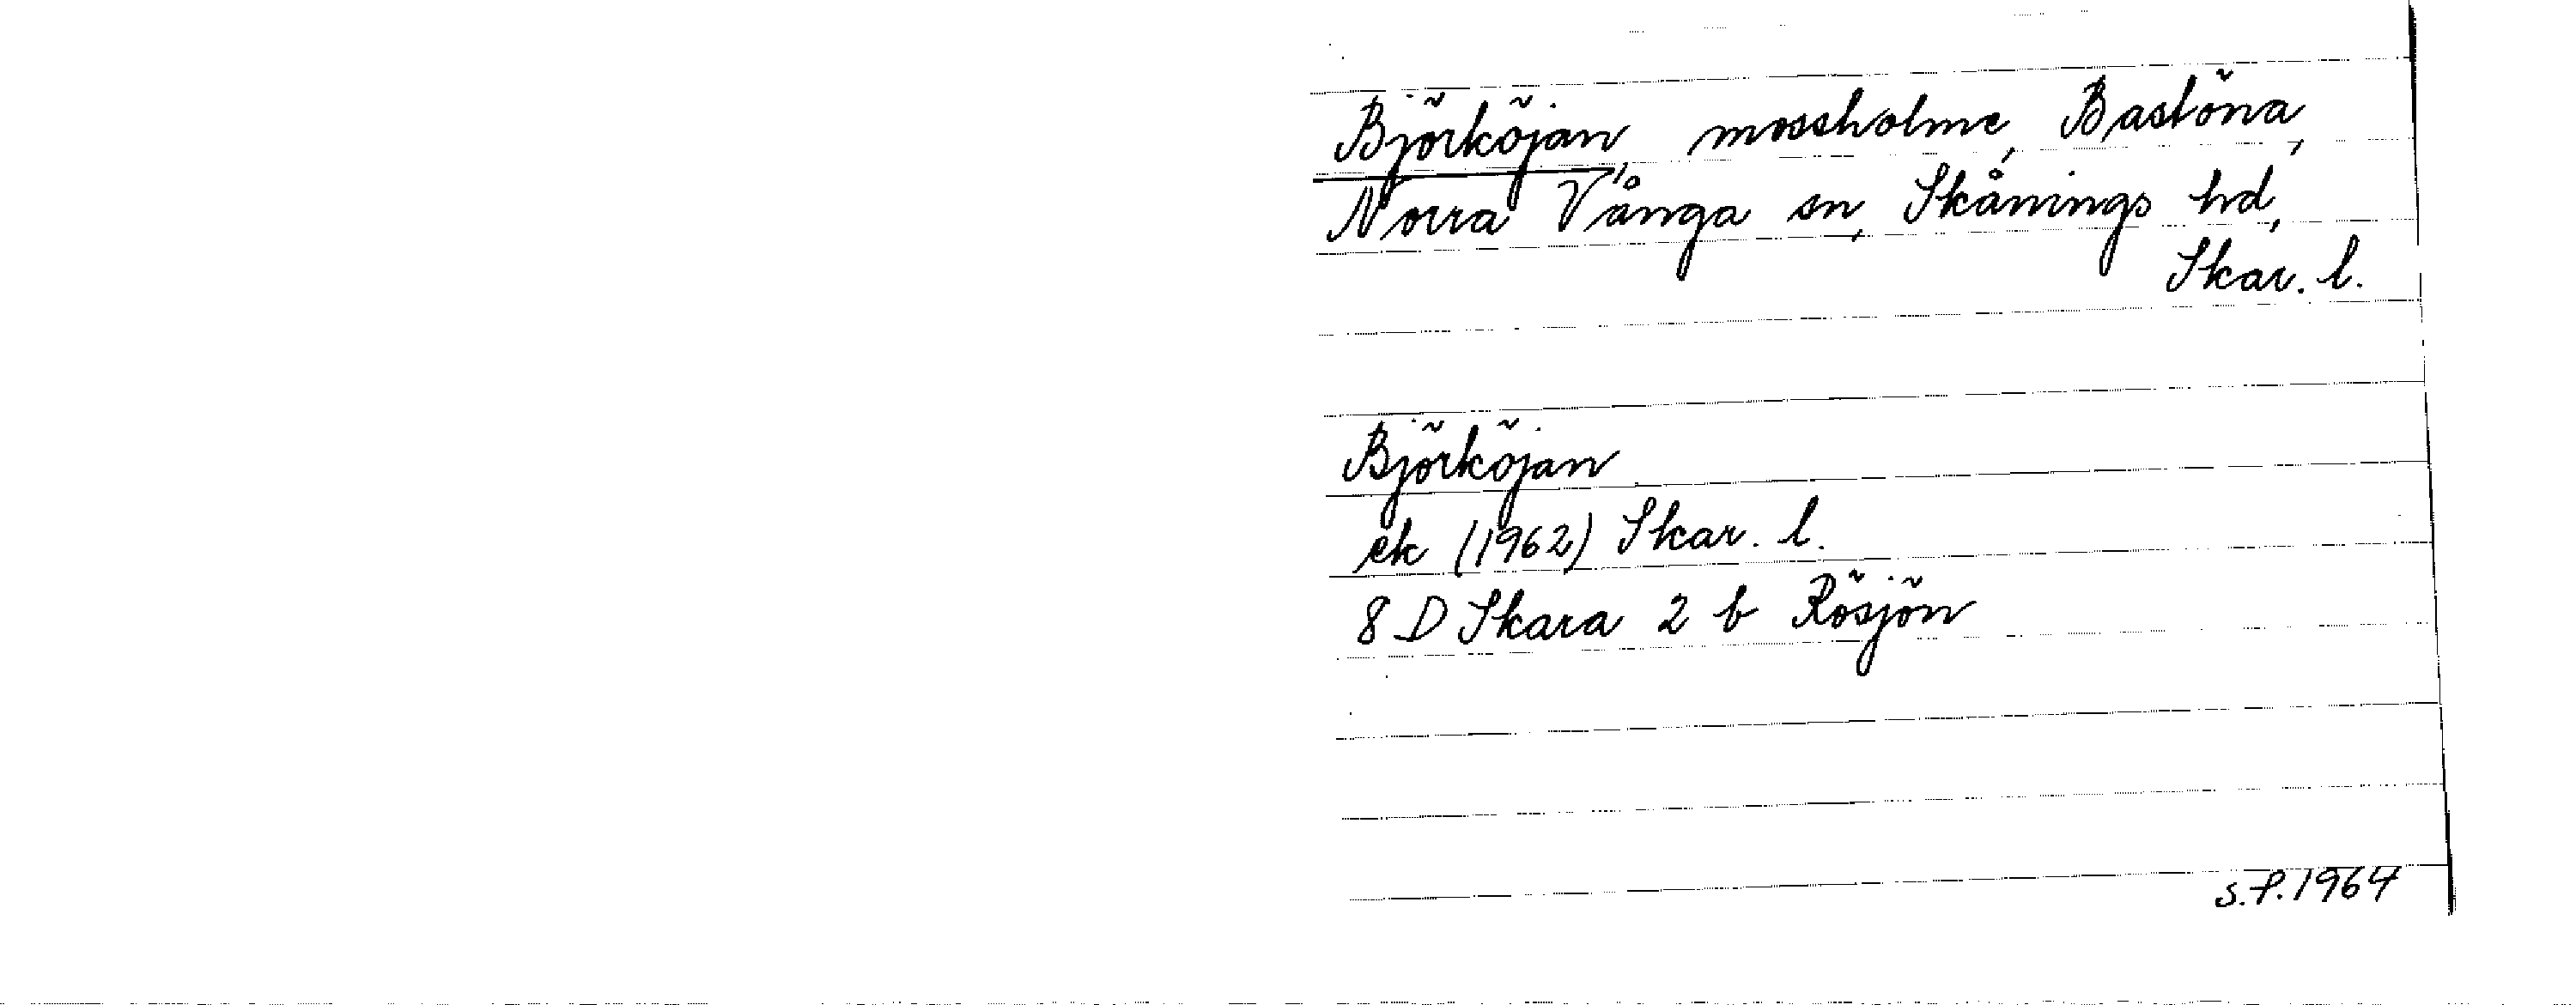 Björköjan, mossholme, Bastöna,
Norra Vånga sn, Skånings hd,
Skar. l.
Björköjan
ek (1962) Skar. l.
8 D Skara 2 b Rösjön
S.P. 1964